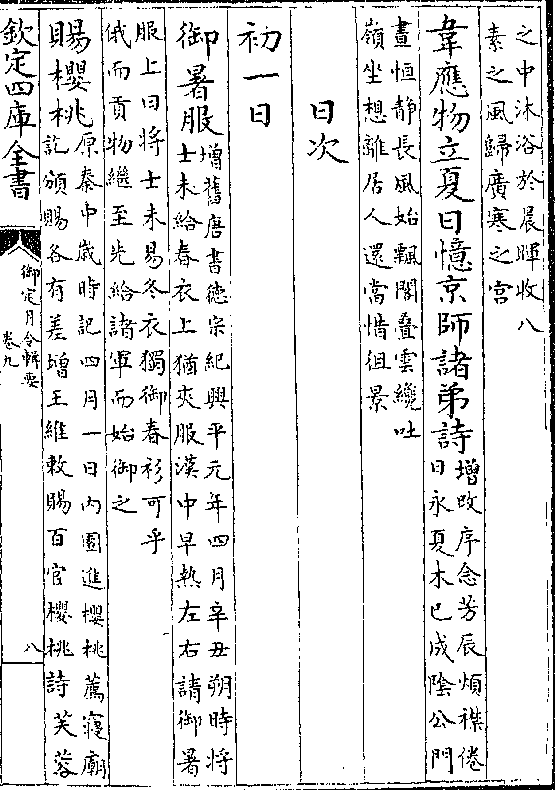 之中沐浴於晨暉收八
素之風歸廣寒之宮
韋應物立夏日憶京師諸弟詩
增改序念芳辰煩襟倦
日永夏木已成陰公門
晝恒靜長風始飄閣疊雲纔吐
嶺坐想離居人還當惜徂景
日次
初一日
御暑服
增舊唐書德宗紀興平元年四月辛丑朔時將
士未給春衣上猶夾服漢中早熱左右請御暑
服上曰將士未易冬衣獨御春衫可乎
俄而貢物繼至先給諸軍而始御之
賜櫻桃
原秦中歲時記四月一日內園進櫻桃薦寢廟
訖頒賜各有差增王維敕賜百官櫻桃詩芙蓉
欽定四庫全書
御定月令輯要
卷九
八